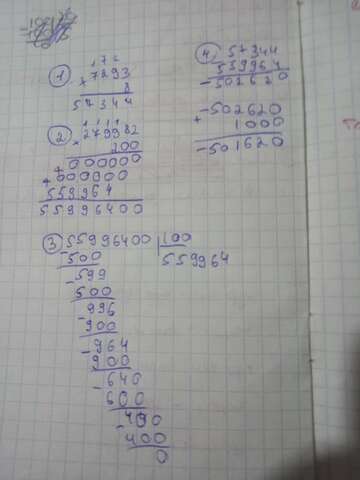 1
1 7 2
× 7293
8
57344
2
1 1 1 1
× 279982
200
+ 000000
+ 000000
559964
55996400
3
55996400 | 100
- 500
559964
- 599
500
- 996
900
- 964
900
- 640
600
- 400
400
0
4
57344
559964
- 502620
- 502620
+ 1000
- 501620